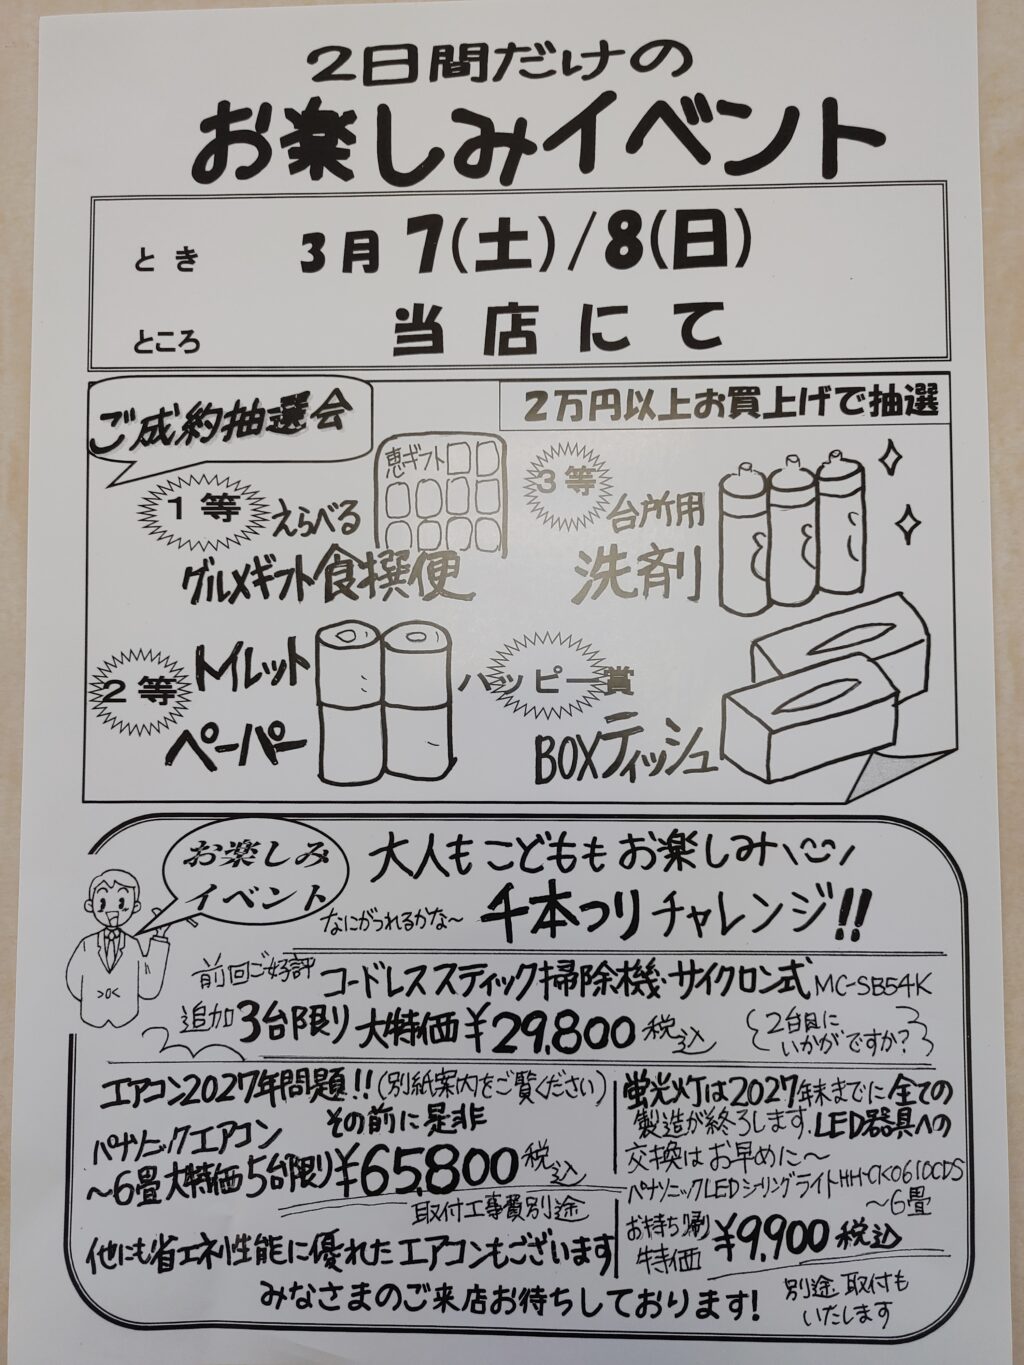 2日間だけの
お楽しみイベント
とき 3月7(土)/8(日)
ところ 当店にて
ご成約抽選会
2万円以上お買上げで抽選
1等 えらべる
恵ギフト
グルメギフト食撰便
3等 台所用
洗剤
2等 トイレット
ペーパー
ハッピー賞
BOXティッシュ
お楽しみ
イベント
大人もこどももお楽しみ
なにがつれるかな〜 千本つりチャレンジ!!
前回ご好評 コードレススティック掃除機・サイクロン式 MC-SB54K
追加3台限り 大特価¥29,800税込
2台目に
いかがですか?
エアコン2027年問題!!(別紙案内をご覧ください)
その前に是非
パナソニックエアコン
〜6畳大特価5台限り¥65,800税込
取付工事費別途
他にも省エネ性能に優れたエアコンもございます
蛍光灯は2027年末までに全ての
製造が終ろします。LED器具への
交換はお早めに〜
パナソニックLEDシーリングライトHH-CK0610CDS
〜6畳
お持ち帰り
特価 ¥9,900税込
別途取付も
いたします
みなさまのご来店お待ちしております!